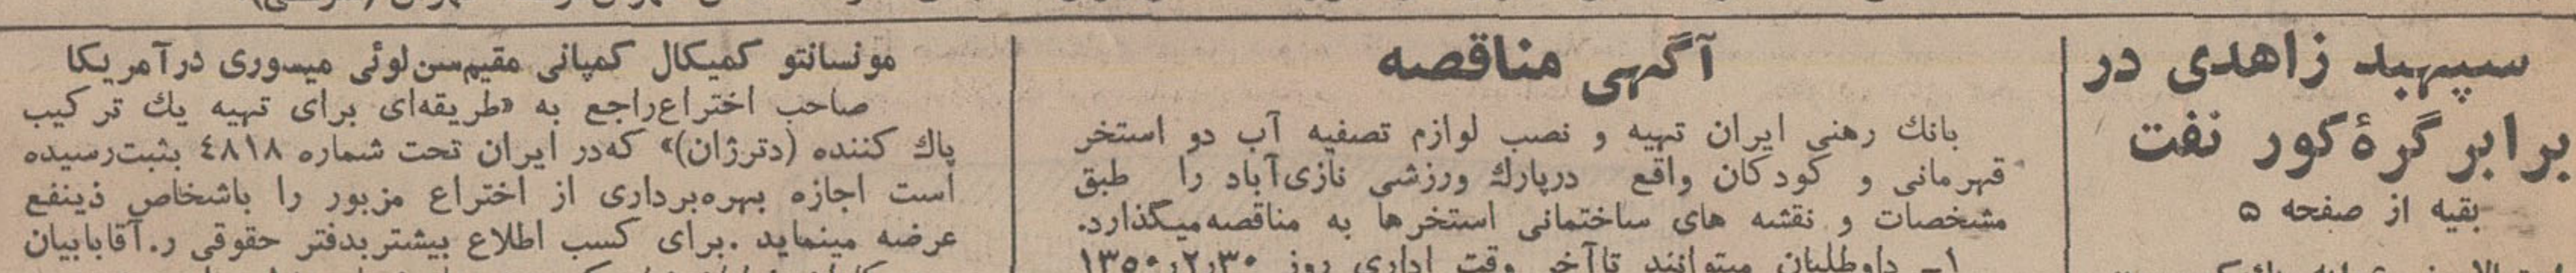 سپهبد زاهدی در
برابر گرهٔ کور نفت
بقیه از صفحه ۵
آگهی مناقصه
بانك رهنی ایران تهیه و نصب لوازم تصفیه آب دو استخر
قهرمانی و کودکان واقع درپارك ورزشی نازی‌آباد را طبق
مشخصات و نقشه های ساختمانی استخرها به مناقصه میگذارد.
۱- داوطلبان میتوانند تاآخر وقت اداری روز ۱۳۵۰٫۲٫۳۰
مونسانتو کمیکال کمپانی مقیم‌سن‌لوئی میسوری درآمریکا
صاحب اختراع‌راجع به «طریقه‌ای برای تهیه یك ترکیب
پاك کننده (دترژان)» که‌در ایران تحت شماره ٤٨١٨ بثبت‌رسیده
است اجازه بهره‌برداری از اختراع مزبور را باشخاص ذینفع
عرضه مینماید .برای کسب اطلاع بیشتر بدفتر حقوقی ر.آقابابیان